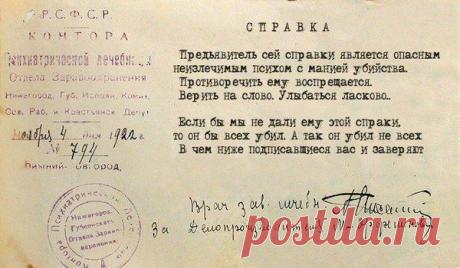 Р.С.Ф.С.Р.
КОНТОРА
Психиатрической лечебниц
Отдела Здравоохранения
Нижегород. Губ. Исполн. Комит.
Сов. Раб. и Крестьянск. Депут
Ноября 4 дня 1922 г.
№ 794
Нижний-Новгород.
СПРАВКА
Предьявитель сей справки является опасным
неизлечимым психом с манией убийства.
Противоречить ему воспрещается.
Верить на слово. Улыбаться ласково.
Если бы мы не дали ему этой спраки,
то он бы всех убил. А так он убил не всех
В чем ниже подписавшиеся вас и заверяют
Врач зав. лечебн.
За Делопроизводителя
Нижегород.
Губернского
Отдела Здрав-
охранения
postila.ru